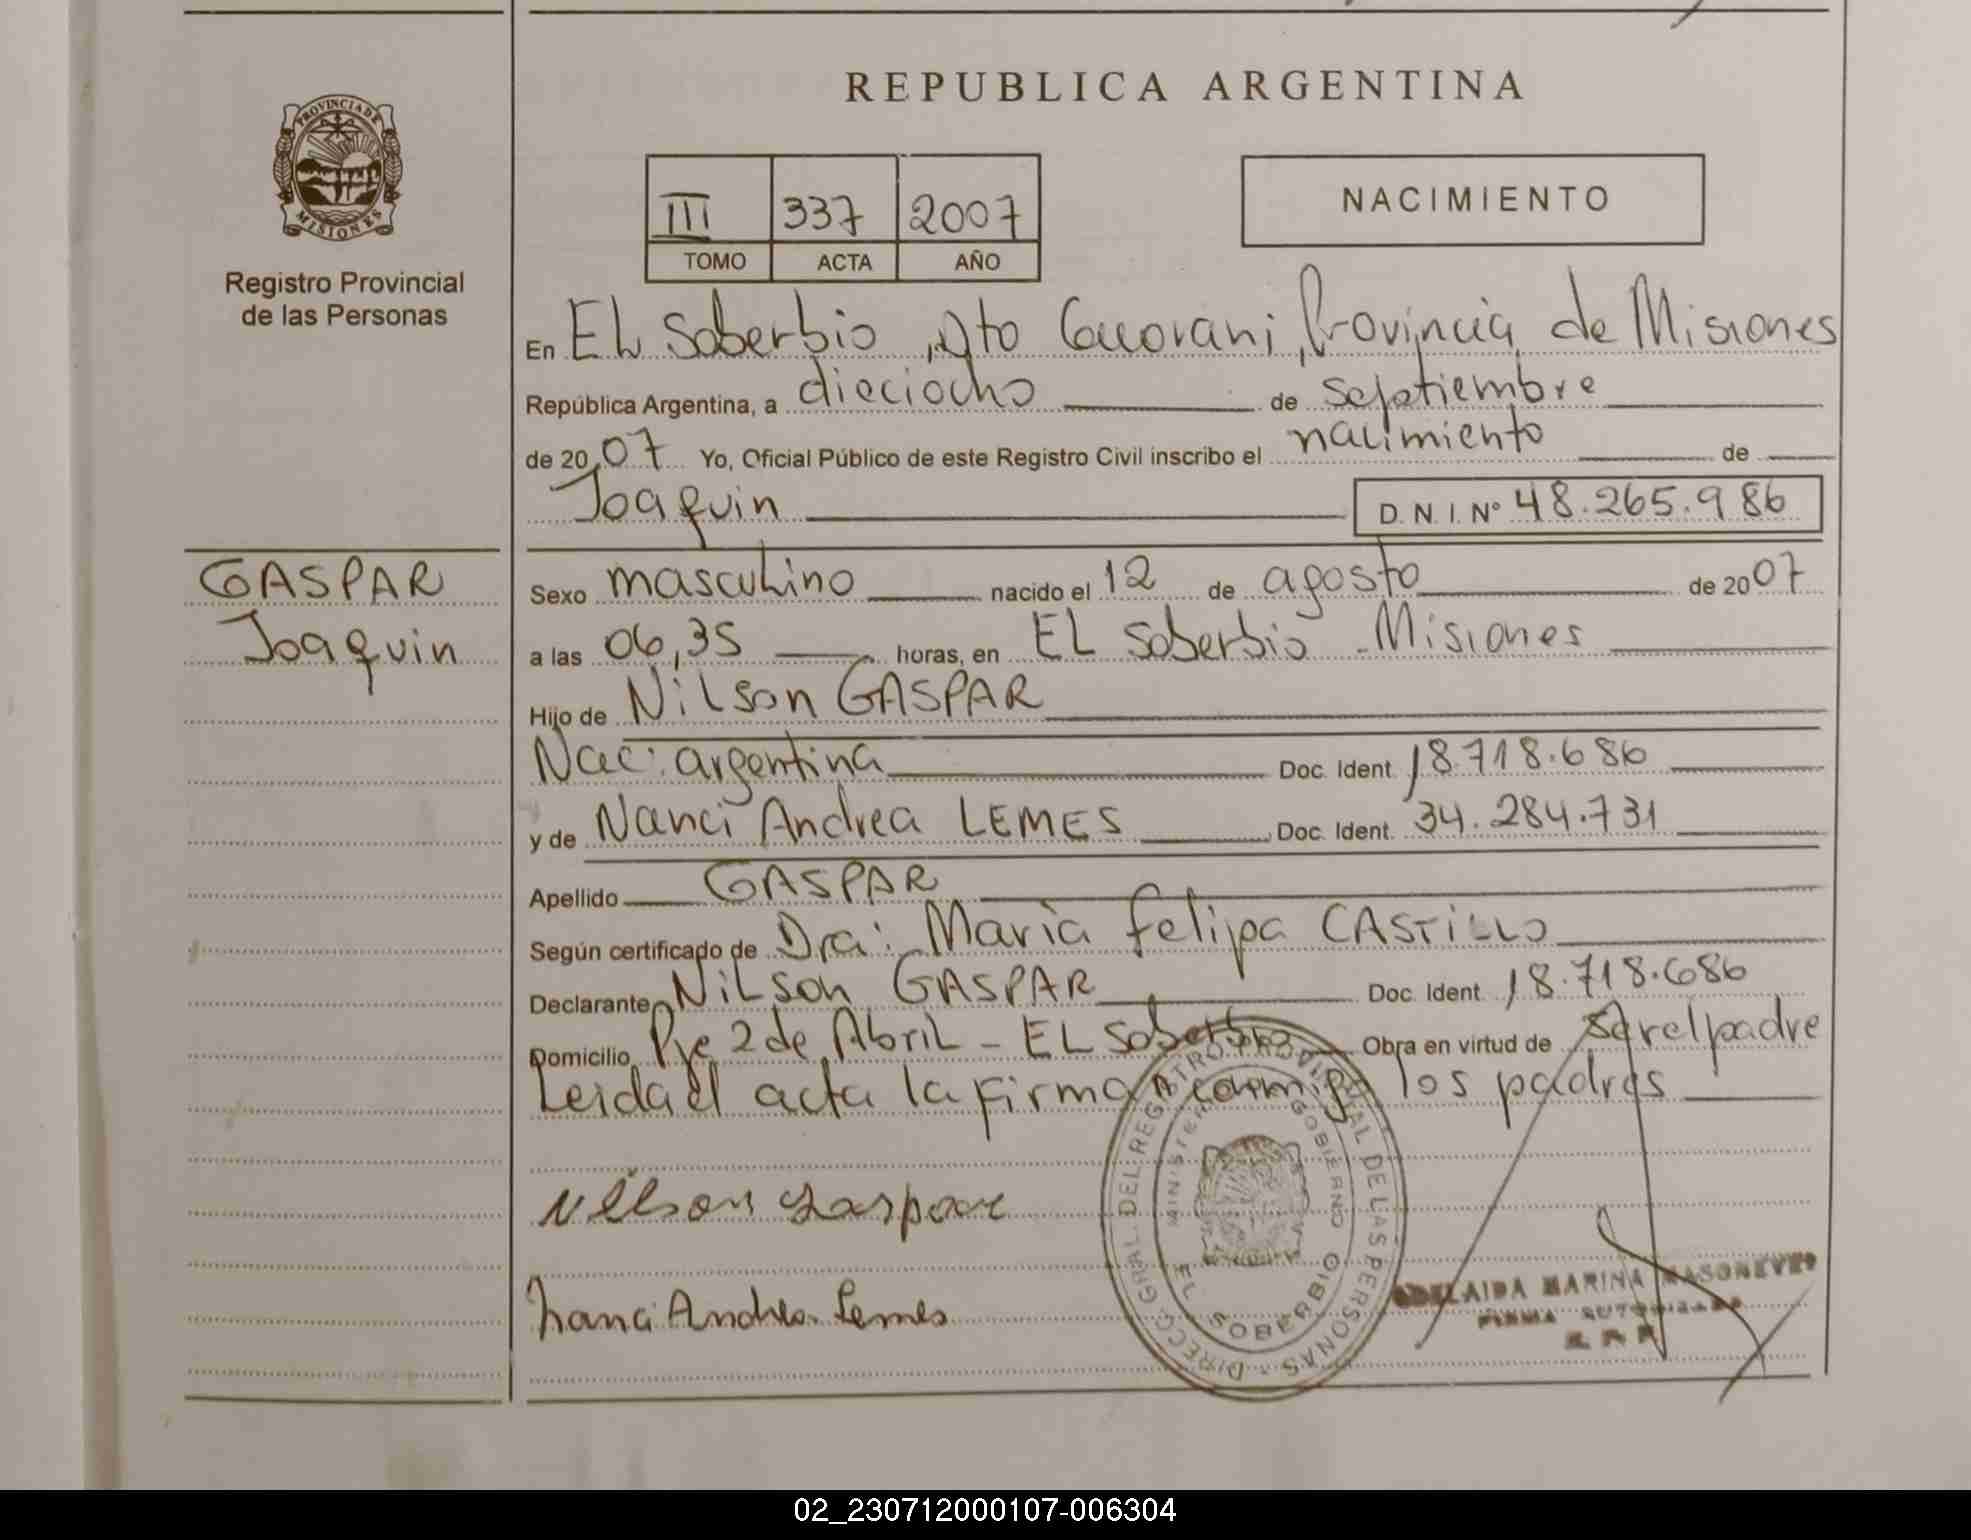 REPUBLICA ARGENTINA
PROVINCIA DE MISIONES
Registro Provincial
de las Personas
III 337 2007
TOMO ACTA AÑO
NACIMIENTO
En EL Soberbio, Dto Guarani, Provincia de Misiones
República Argentina, a dieciocho de septiembre
de 2007 Yo, Oficial Público de este Registro Civil inscribo el nacimiento de
Joaquin D. N. I. Nº 48.265.986
GASPAR
Joaquin
Sexo masculino nacido el 12 de agosto de 2007
a las 06,35 horas, en EL Soberbio - Misiones
Hijo de Nilson GASPAR
Nac: argentina Doc. Ident. 18.718.686
y de Nanci Andrea LEMES Doc. Ident. 34.284.731
Apellido GASPAR
Según certificado de Dra: Maria Felipa CASTILLO
Declarante Nilson GASPAR Doc. Ident. 18.718.686
Domicilio Pje 2 de Abril - EL Soberbio Obra en virtud de ser el padre
Leida el acta la firman conmigo los padres
Nilson Gaspar
Nanci Andrea Lemes
DIRECC. GRAL. DEL REGISTRO PROVINCIAL DE LAS PERSONAS
MINISTERIO GOBIERNO
EL SOBERBIO
ADELAIDA MARINA
FIRMA AUTORIZADA
02_230712000107-006304